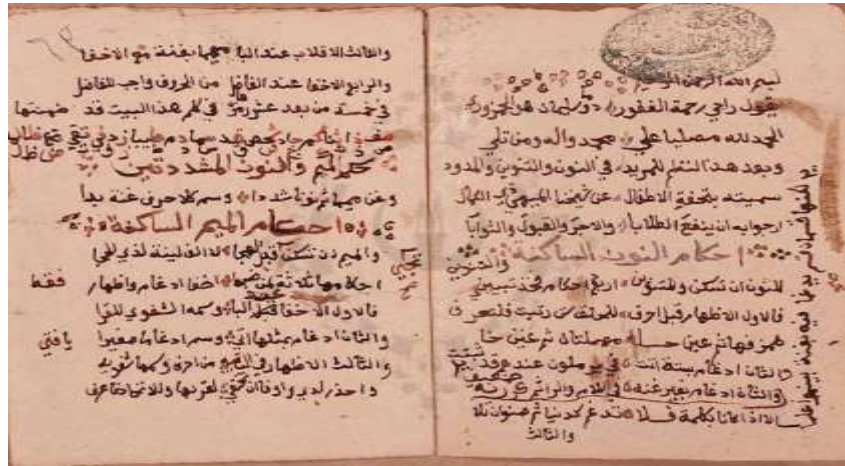 بسم الله الرحمن الرحيم
يقول راجي رحمة الغفور دوما سليمان هو الجمزوري
الحمد لله مصليا على محمد واله ومن تلى
وبعد هذا النظم للمريد في النون والتنوين والمدود
سميته بتحفة الاطفال عن شيخنا الميهي ذي الكمال
ارجوا به ان ينفع الطلابا والاجر والقبول والثوابا
احكام النون الساكنة والتنوين
للنون ان تسكن وللتنوين اربع احكام فخذ تبييني
فالاول الاظهار قبل احرف للحلق ست رتبت فلتعرف
همز فهاء ثم عين حاء مهملتان ثم غين خا
والثان ادغام بستة اتت في يرملون عندهم قد ثبتت
والثان ادغام بغير غنه في اللام والرا ثم
الا اذا كانا بكلمة فلا تدغم كدنيا ثم صنوان تلا
والثالث
والثالث الاقلاب عند الباء ميما بغنة مع الاخفا
والرابع الاخفا عند الفاضل من الحروف واجب للفاضل
في خمسة من بعد عشر رمزها في كلم هذا البيت قد ضمنتها
صف ذا ثنا كم جاد شخص قد سما دم طيبا زد في تقى ضع ظالما
حكم الميم والنون المشددتين
وغن ميما ثم نونا شددا وسم كلا حرف غنة بدا
احكام الميم الساكنة
والميم ان تسكن تجي قبل الهجا لا الف لينة لذي الحجا
احكامها ثلاثة لمن ضبط اخفا ادغام واظهار فقط
فالاول الاخفا قبل الباء وسمه الشفوي للقرا
والثان ادغام بمثلها اتى وسم ادغاما صغيرا يا فتى
والثالث الاظهار في البقية من احرف وسمها شفويه
واحذر لدى واو وفا ان تختفي لقربها وللاتحاد فاعرف